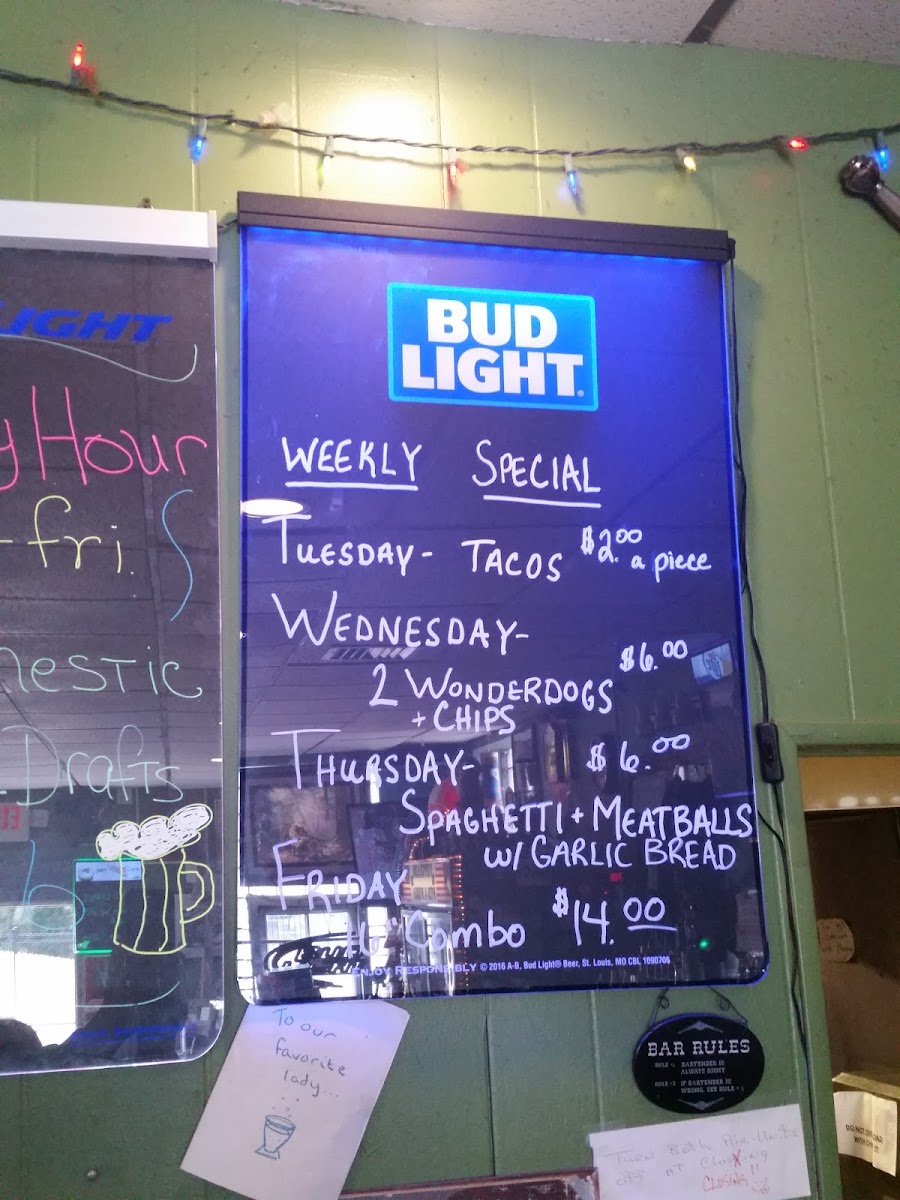 LIGHT
y Hour
-fri.
mestic
Drafts
BUD
LIGHT
WEEKLY SPECIAL
TUESDAY- TACOS $2.00 a piece
WEDNESDAY-
2 WONDERDOGS $6.00
+ CHIPS
THURSDAY- $6.00
SPAGHETTI + MEATBALLS
W/ GARLIC BREAD
FRIDAY
Combo $14.00
ENJOY RESPONSIBLY © 2016 A-B, Bud Light® Beer, St. Louis, MO CBL 1090706
To our
favorite
lady...
BAR RULES
RULE #1 BARTENDER IS
ALWAYS RIGHT
RULE #2 IF BARTENDER IS
WRONG, SEE RULE #1
Turn Both
at
CLOSING!!
DO NOT